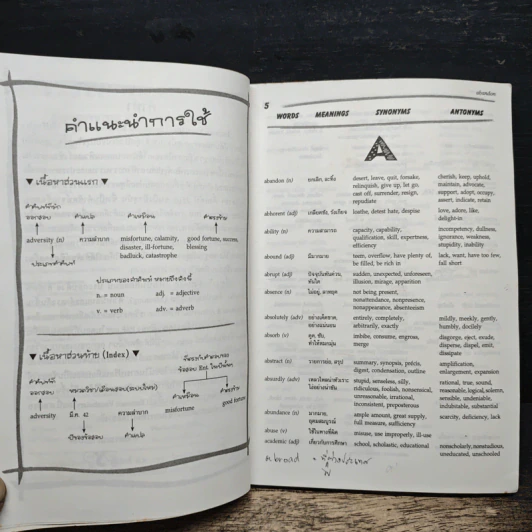 คำแนะนำการใช้
▼ เนื้อหาส่วนแรก ▼
คำศัพท์ที่มัก
ออกสอบ
คำแปล
คำเหมือน
คำตรงข้าม
adversity (n)
ความลำบาก
misfortune, calamity,
disaster, ill-fortune,
badluck, catastrophe
good fortune, success,
blessing
ประเภทคำศัพท์
ประเภทของคำศัพท์ หมายถึงดังนี้
n. = noun
adj. = adjective
v. = verb
adv. = adverb
▼ เนื้อหาส่วนท้าย (Index) ▼
adversity
มี.ค. 42
ความลำบาก
misfortune
good fortune
ปีของข้อสอบ
คำแปล
คำเหมือน
คำตรงข้าม
abandon
5
WORDS MEANINGS SYNONYMS ANTONYMS
A
abandon (n) ยกเลิก, ละทิ้ง desert, leave, quit, forsake, cherish, keep, uphold,
relinquish, give up, let go, maintain, advocate,
cast off, surrender, resign, support, adopt, occupy,
repudiate assert, indicate, retain
abhorrent (adj) เกลียดชัง, รังเกียจ loathe, detest hate, despise love, adore, like,
delight-in
ability (n) ความสามารถ capacity, capability, incompetency, dullness,
qualification, skill, expertness, ignorance, weakness,
efficiency stupidity, inability
abound (adj) มีมากมาย teem, overflow, have plenty of, lack, want, have too few,
be filled, be rich in fall short
abrupt (adj) sudden, unexpected, unforseen,
ทันใด illusion, mirage, apparition
absence (n) ไม่อยู่, ขาดหยุด not being present,
nonattendance, nonpresence,
nonappearance, absenteeism
absolutely (adv) อย่างเด็ดขาด, entirely, completely, mildly, meekly, gently,
อย่างแน่นอน arbitrarily, exactly humbly, docilely
absorb (v) ดูด, ซับ, imbibe, consume, engross, disgorge, eject, evade,
ทำให้หมกมุ่น merge disperse, dispel, emit,
dissipate
abstract (n) รายการย่อ, สรุป summary, synopsis, précis, amplification,
digest, condensation, outline enlargement, expansion
absurdly (adv) stupid, senseless, silly, rational, true, sound,
ridiculous, foolish, nonsensical, reasonable, logical, science,
unreasonable, irrational, sensible, undeniable,
inconsistent, preposterous indubitable, substantial
abundance (n) มากมาย, ample amount, great supply, scarcity, deficiency, lack
อุดมสมบูรณ์ full measure, sufficiency
abuse (v) ใช้ในทางที่ผิด misuse, use improperly, ill-use
academic (adj) เกี่ยวกับการศึกษา school, scholastic, educational nonscholarly, nonstudious,
uneducated, unschooled